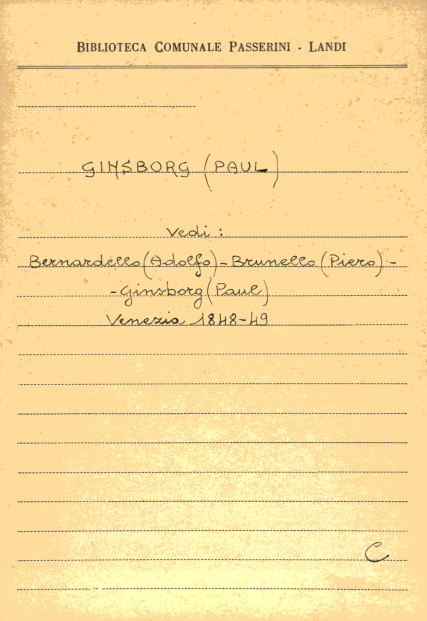 BIBLIOTECA COMUNALE PASSERINI - LANDI
GINSBORG (PAUL)
Vedi :
Bernardello (Adolfo) - Brunello (Piero) -
- Ginsborg (Paul)
Venezia 1848-49
C